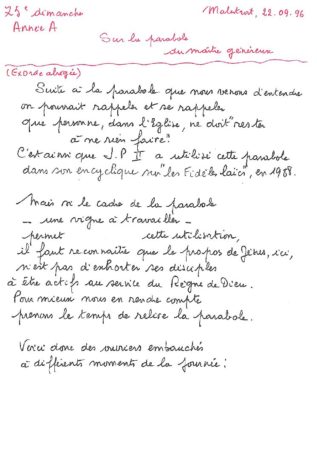 25e dimanche
Malestroit, 22.09.96
Année A
Sur la parabole
du maître généreux
(Exorde abrégé)
Suite à la parabole que nous venons d'entendre
on pourrait rappeler et se rappeler
que personne, dans l'Eglise, ne doit "rester
à ne rien faire".
C'est ainsi que J.P II a utilisé cette parabole
dans son encyclique sur "les Fidèles laïcs", en 1988.
Mais si le cadre de la parabole
_ une vigne à travailler _
permet cette utilisation,
il faut reconnaître que le propos de Jésus, ici,
n'est pas d'exhorter ses disciples
à être actifs au service du Règne de Dieu.
Pour mieux nous en rendre compte
prenons le temps de relire la parabole.
Voici donc des ouvriers embauchés
à différents moments de la journée :